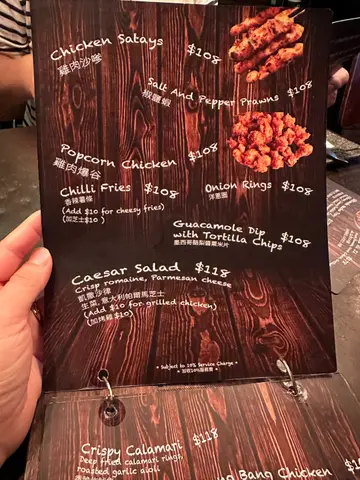 Chicken Satays $108
雞肉沙嗲
Salt And Pepper Prawns $108
椒鹽蝦
Popcorn Chicken $108
雞肉爆谷
Chilli Fries $108
香辣薯條
(Add $10 for cheesy fries)
(加芝士$10)
Onion Rings $108
洋蔥圈
Guacamole Dip
with Tortilla Chips $108
墨西哥酪梨醬粟米片
Caesar Salad $118
Crisp romaine, Parmesan cheese
凱撒沙律
生菜, 意大利帕爾馬芝士
(Add $10 for grilled chicken)
(加烤雞$10)
* Subject to 10% Service Charge *
* 加收10%服務費 *
Crispy Calamari $118
Deep fried calamari rings,
roasted garlic aioli
Bang Chicken